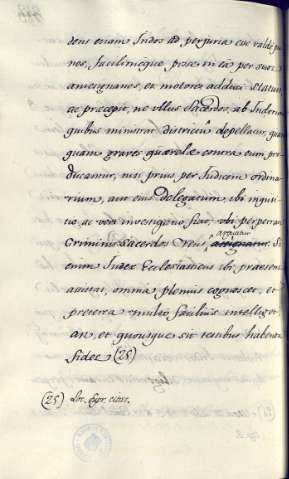 dens etiam Indos ad perjuria esse valde pro
nos, facilimeque posse in ea per suos
amesignanes, et motores adduci statuit
ac præcepit, ne vllus Sacerdos, ab Indorum
quibus ministrat districtu depellatur, quam
quam graves quærelæ contra eum pro
ducantur, nisi prius, per Judicem ordina
rium, aut eius Delegatum, ibi inquisi
tio ac vera investigatio fiat, ubi perpetrati
Criminis Sacerdos Reus, arguatur. Si
enim Iudex Ecclesiasticus ibi, præsens
assistat, omnia plenius cognoscet, et
præterea multo facilius intelliget
an, et quousque sit testibus habenda
fides (25)
(25) Loc. supr. citat.